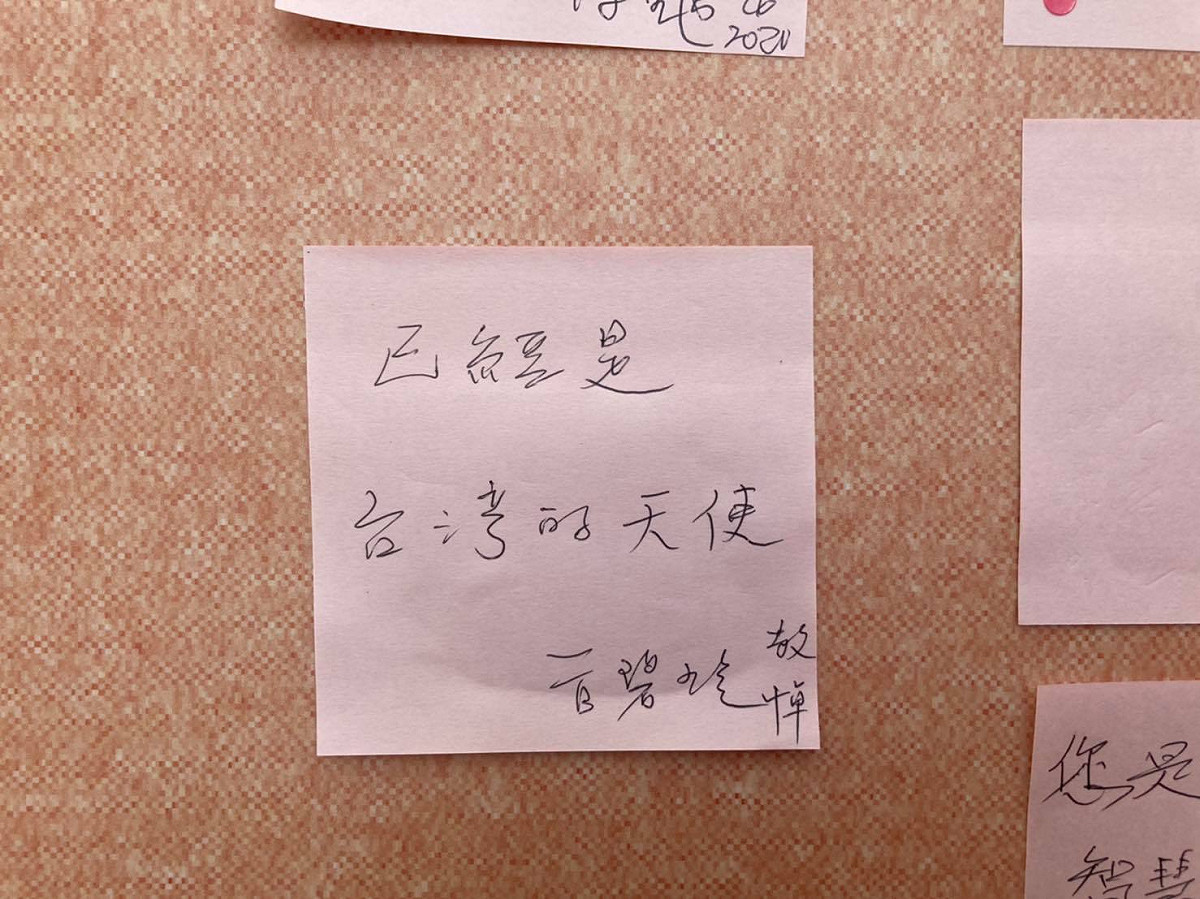 2020
已經是
台灣的天使
碧
敬
悼
您是
智慧